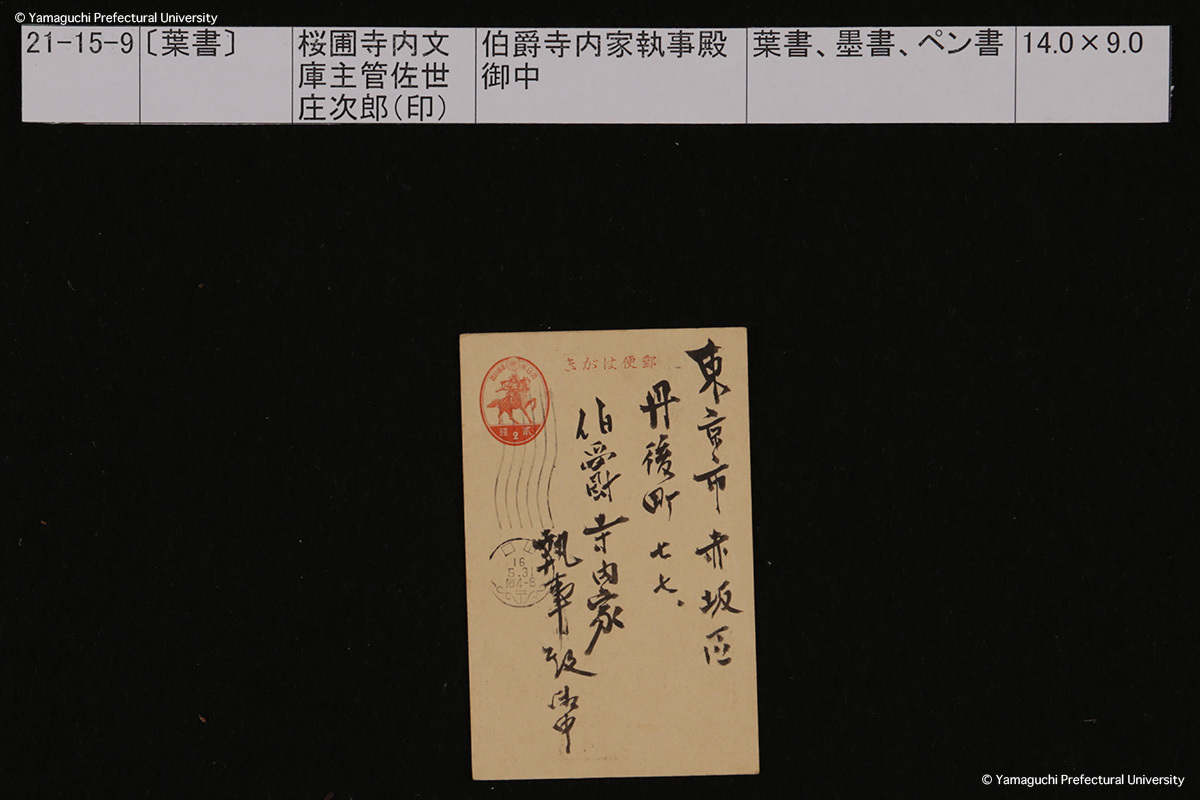 © Yamaguchi Prefectural University
21-15-9
〔葉書〕
桜圃寺内文
庫主管佐世
庄次郎(印)
伯爵寺内家執事殿
御中
葉書、墨書、ペン書
14.0×9.0
郵便はがき
東京市赤坂區
丹後町七七、
伯爵寺内家
執事殿御中
山口
16
5.31
© Yamaguchi Prefectural University